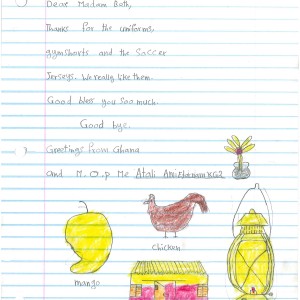 Dear Madam Beth,
Thanks for the uniforms,
gymshorts and the Soccer
Jerseys. We really like them.
Good bless you Soo much.
Good bye.
Greetings From Ghana
and M.O.P Me Atali
chicken
mango